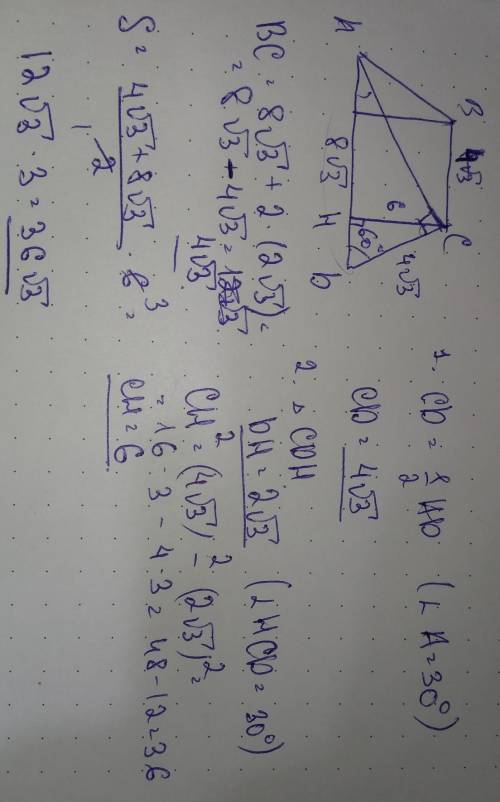 B 4√3 C
A 8√3 H D
6 60° 4√3
1. CD = 1/2 AD (∠A = 30°)
CD = 4√3
2. △ CDH
DH = 2√3 (∠HCD = 30°)
CH² = (4√3)² - (2√3)² =
= 16 · 3 - 4 · 3 = 48 - 12 = 36
CH = 6
BC = 8√3 + 2 · (2√3) =
= 8√3 - 4√3 = 12√3
4√3
S = (4√3 + 8√3)/2 · 6 =
1 3
12√3 · 3 = 36√3